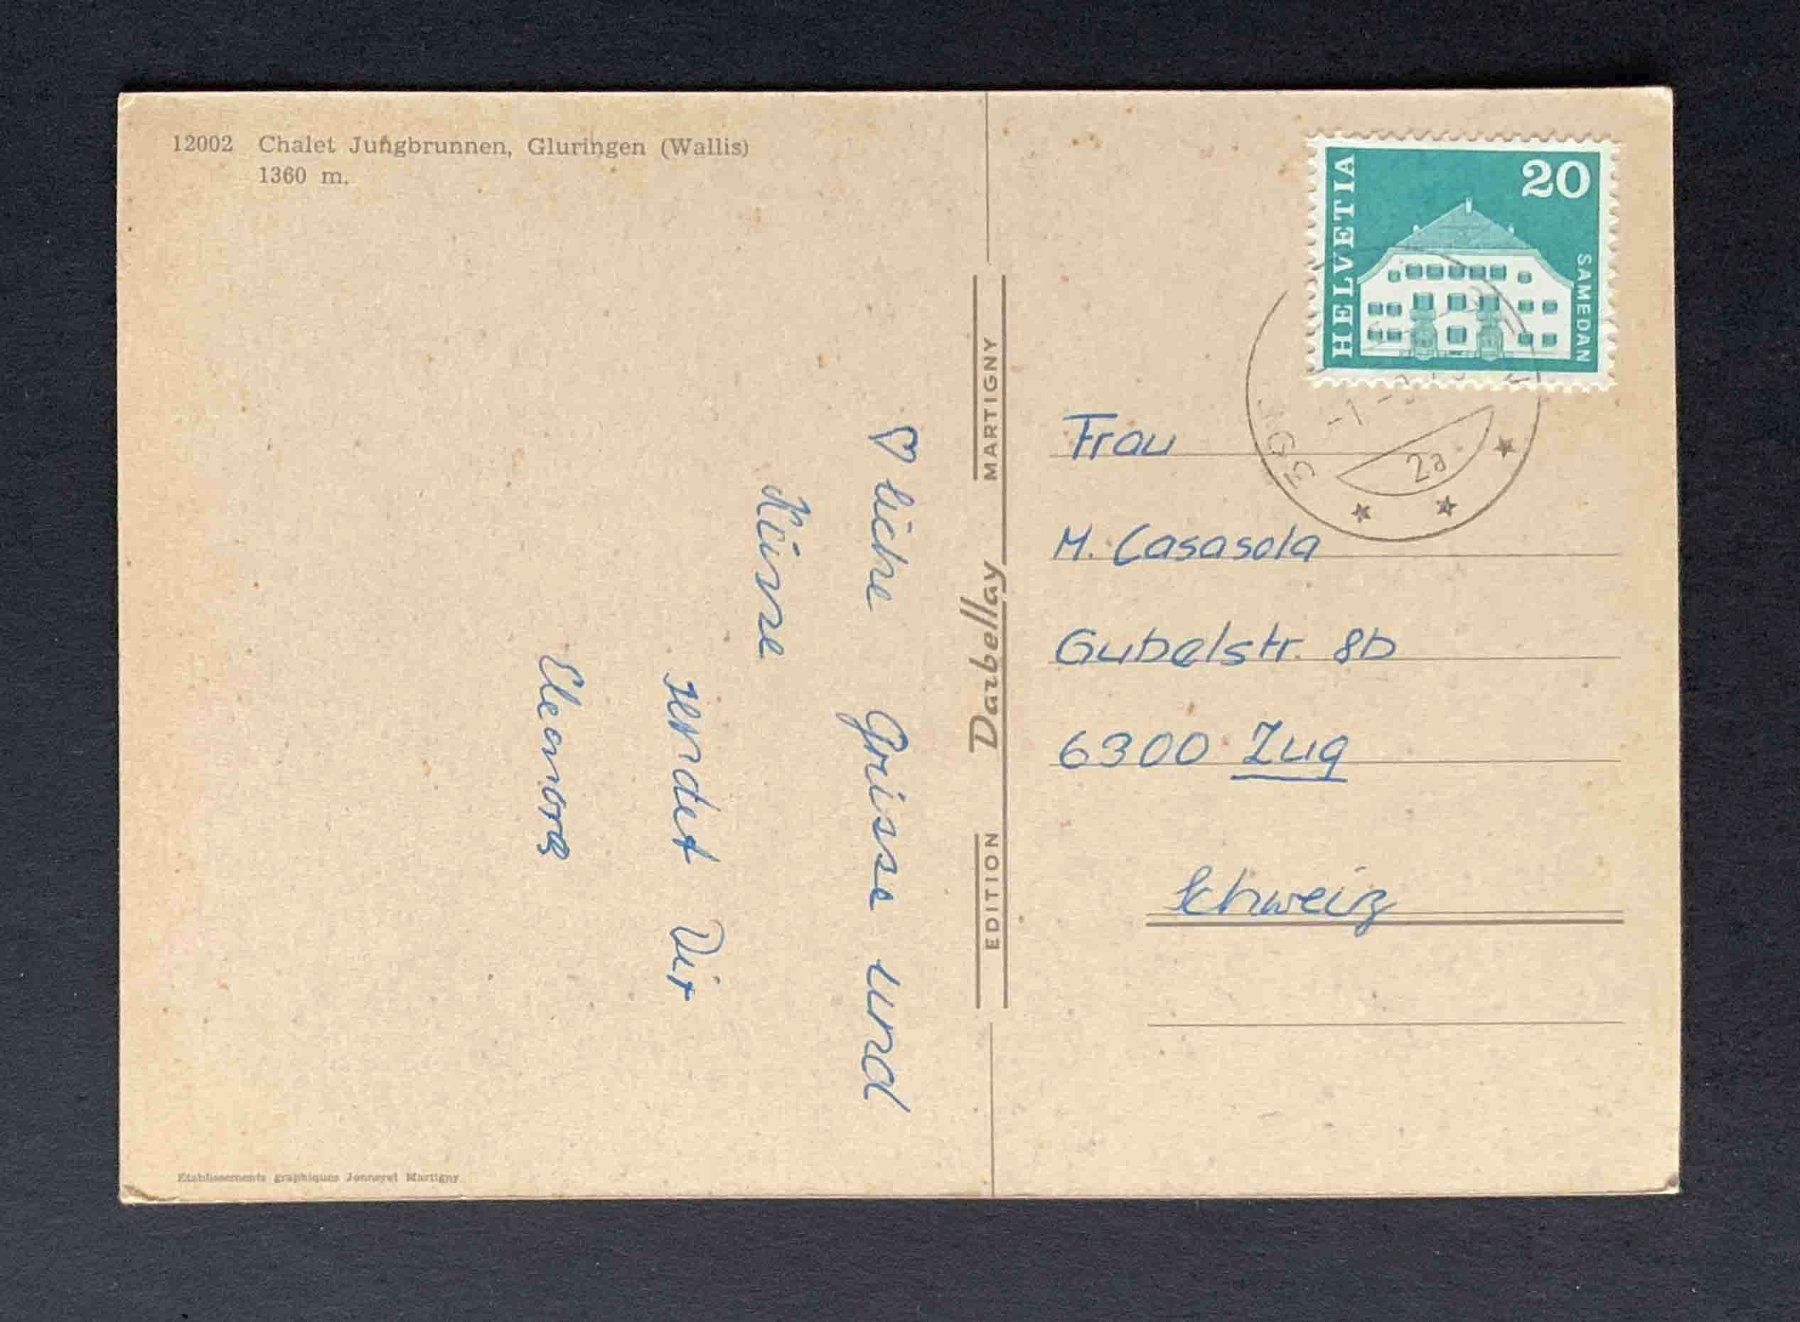 12002 Chalet Jungbrunnen, Gluringen (Wallis)
1360 m.
HELVETIA
20
SAMEDAN
2a
♡liche Grüsse und
Küsse
sendet Dir
Eleonora
EDITION Darbellay MARTIGNY
Frau
M. Casasola
Gubelstr. 8b
6300 Zug
Schweiz
Etablissements graphiques Martigny